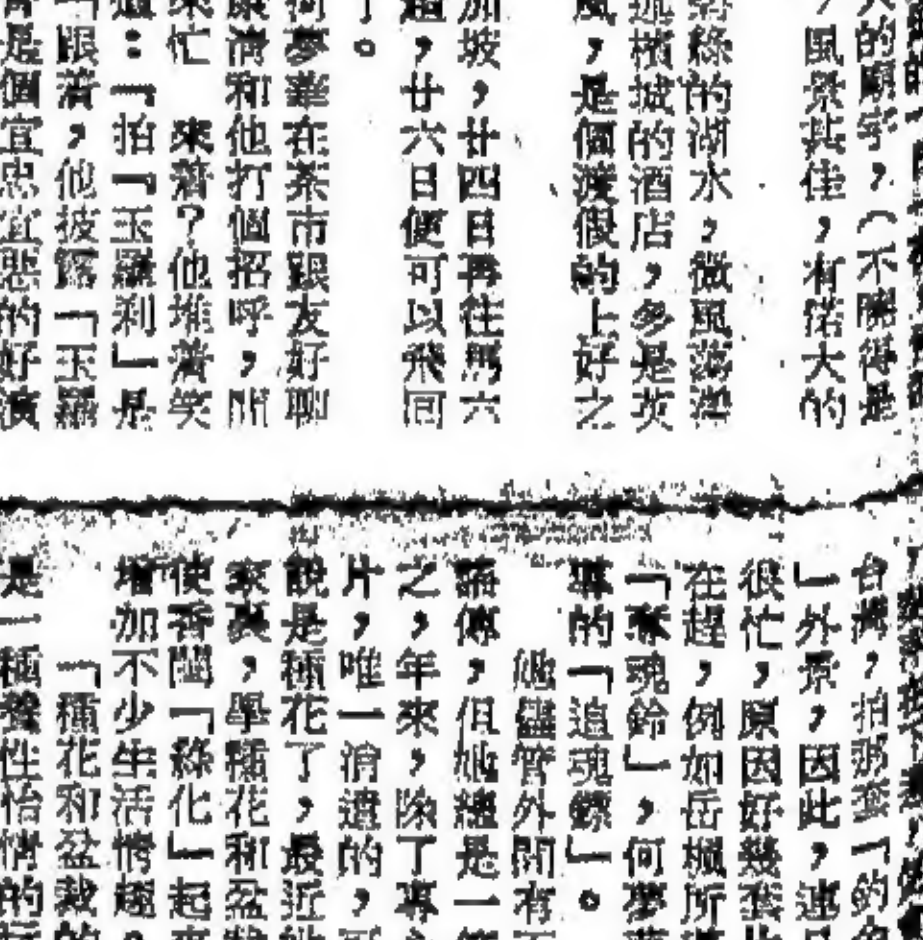 的廟宇，（不曉得是
，風景甚佳，有偌大的
綠的湖水，微風蕩漾
檳城的酒店，多是英
風，是個渡假的上好之
加坡，廿四日再往馬六
，廿六日便可以飛回
。
夢華在茶市跟友好聊
和他打個招呼，問
忙　來着？他堆着笑
：「拍『玉羅刹』是
跟着，他披露「玉羅
是個宜忠宜惡的好演
台灣，拍
」外景，因此，連
很忙，原因好幾套
在趕，例如岳楓所
「奪魂鈴」，何夢
導的「追魂鏢」。
她儘管外間有
傳，但她總是一
之，年來，除了專心
片，唯一消遣的，可
說是種花了，最近她
家裏，學種花和盆栽
使香閨「綠化」起來
增加不少生活情趣。
「種花和盆栽的
是一種養性怡情的